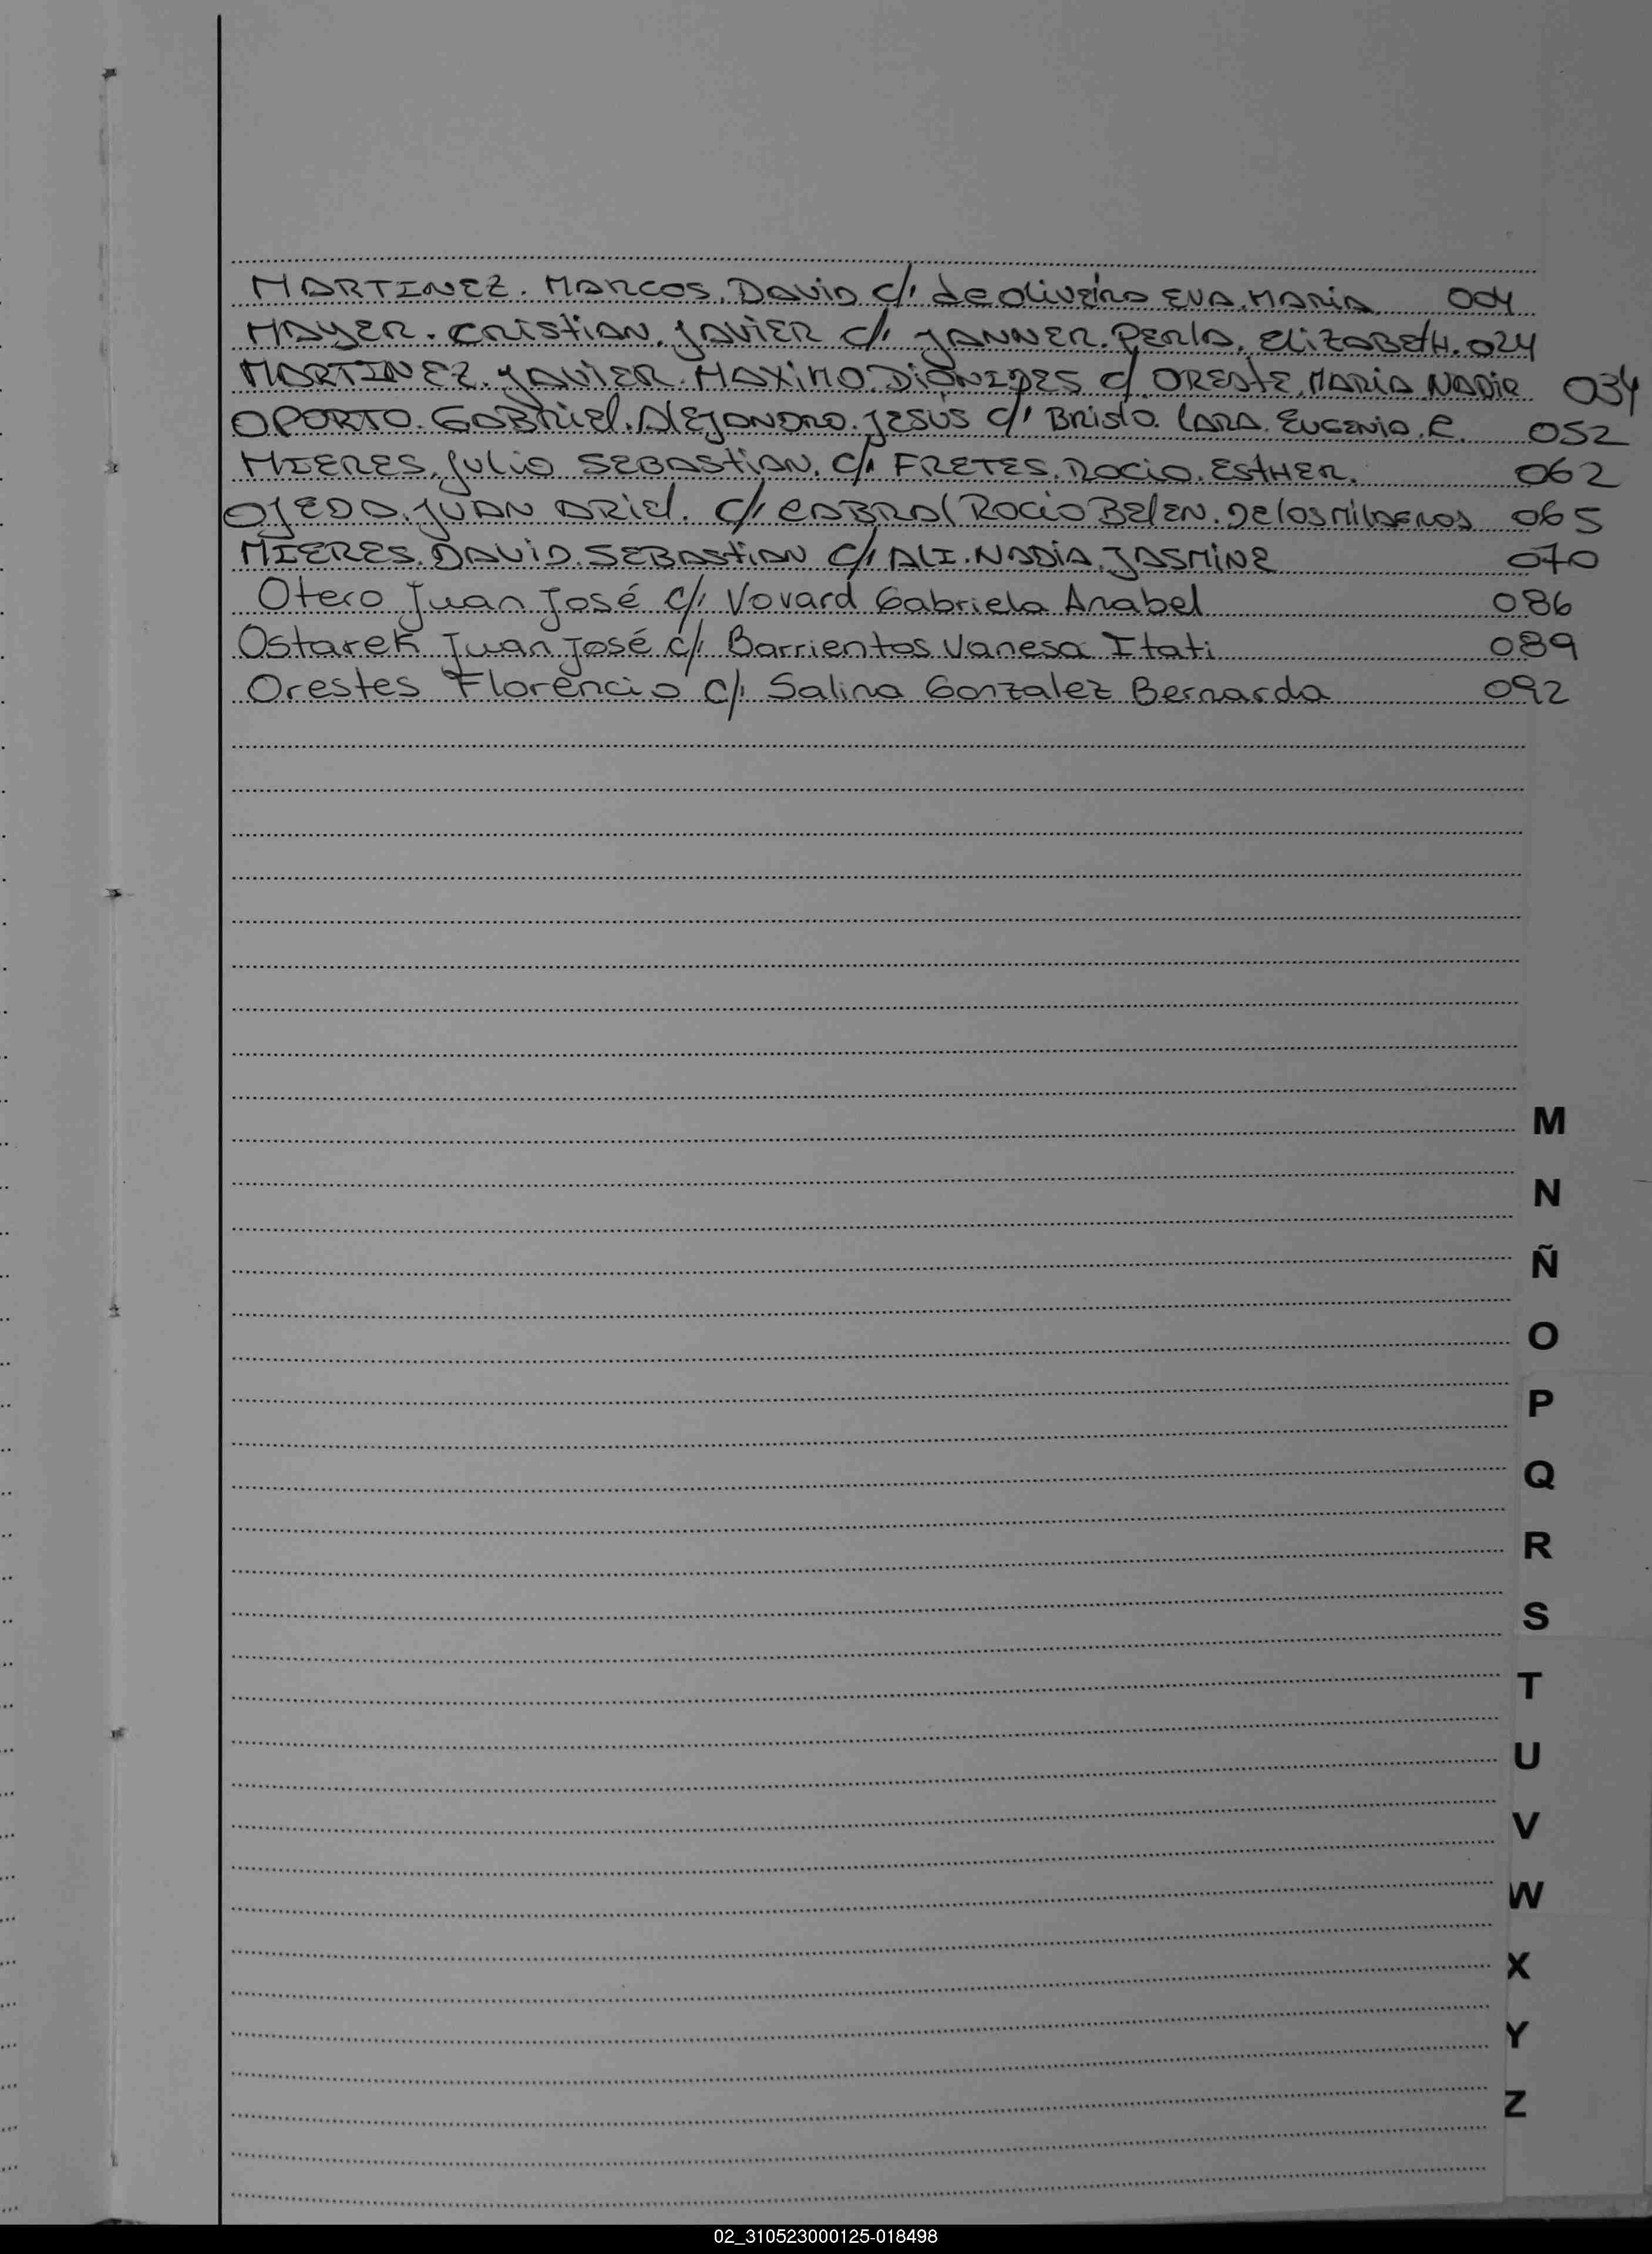 MARTINEZ. MARCOS. DAVID c/. de oliveira EVA. MARIA. 004
MAYER. CRISTIAN. JAVIER c/. JANNER. PERLA. ELIZABETH. 024
MARTINEZ. JAVIER. MAXIMO. DIONIDES c/. ORESTE. MARIA NADIR 034
OPORTO. GABRIEL. ALEJANDRO. JESUS c/. Bristo. LARA. EUGENIA. R. 052
MIERES. Julio SEBASTIAN. c/. FRETES. ROCIO. ESTHER. 062
OJEDA. JUAN ARIEL. c/. CABRAL ROCIO BELEN. DE los MILAGROS 065
MIERES. DAVID. SEBASTIAN c/. ALI. NADIA. JASMINE 070
Otero Juan José c/. Vovard Gabriela Anabel 086
Ostarek Juan José c/. Barrientos Vanesa Itati 089
Orestes Florencio c/. Salina Gonzalez Bernarda 092
M
N
Ñ
O
P
Q
R
S
T
U
V
W
X
Y
Z
02_310523000125-018498